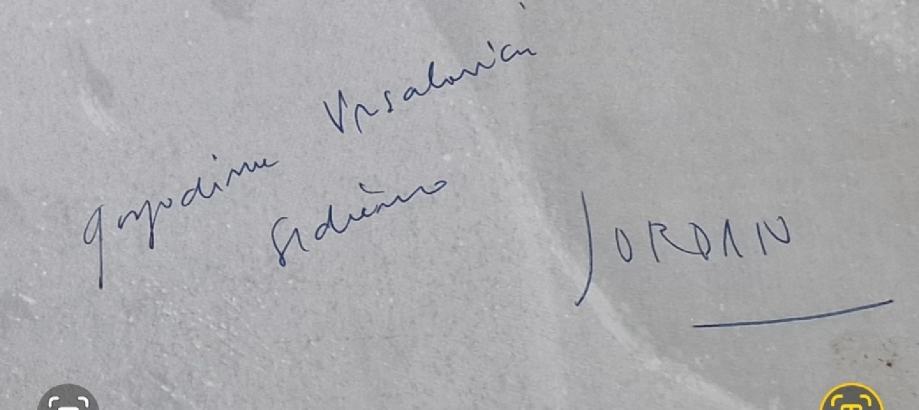 gospodinu Vrsaloviću
srdačno
JORDAN